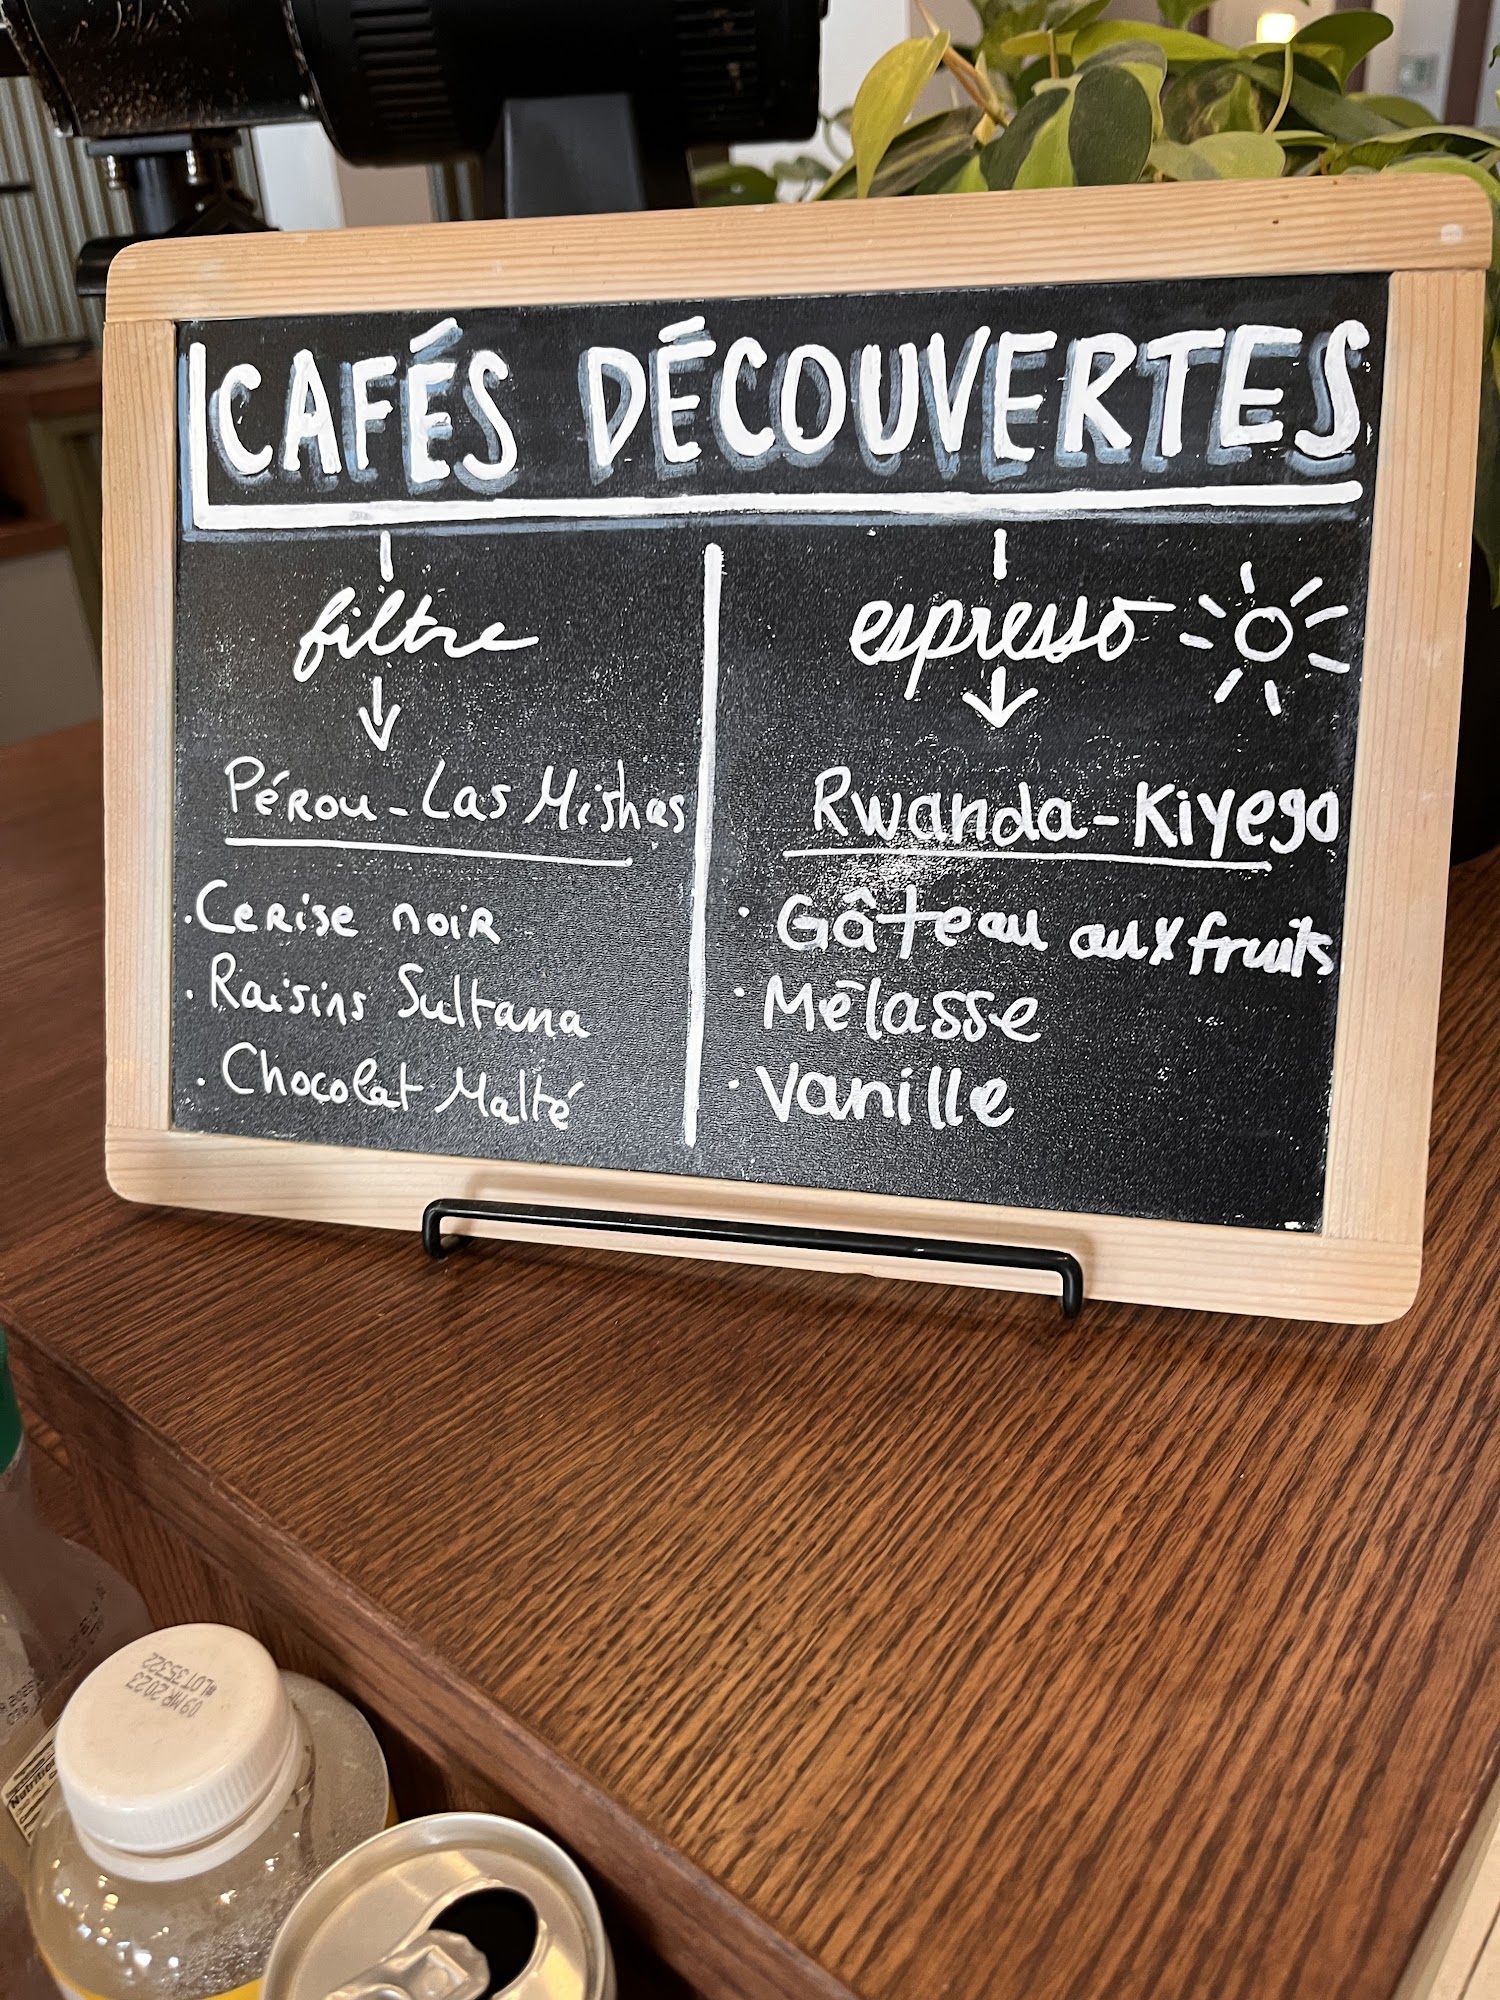 CAFÉS DÉCOUVERTES
filtre
Pérou - Las Mishas
. Cerise noir
. Raisins Sultana
. Chocolat Malté
espresso
Rwanda - Kiyego
. Gâteau aux fruits
. Mêlasse
. Vanille
09 MR 2023
#LOT 35322
Nutrition